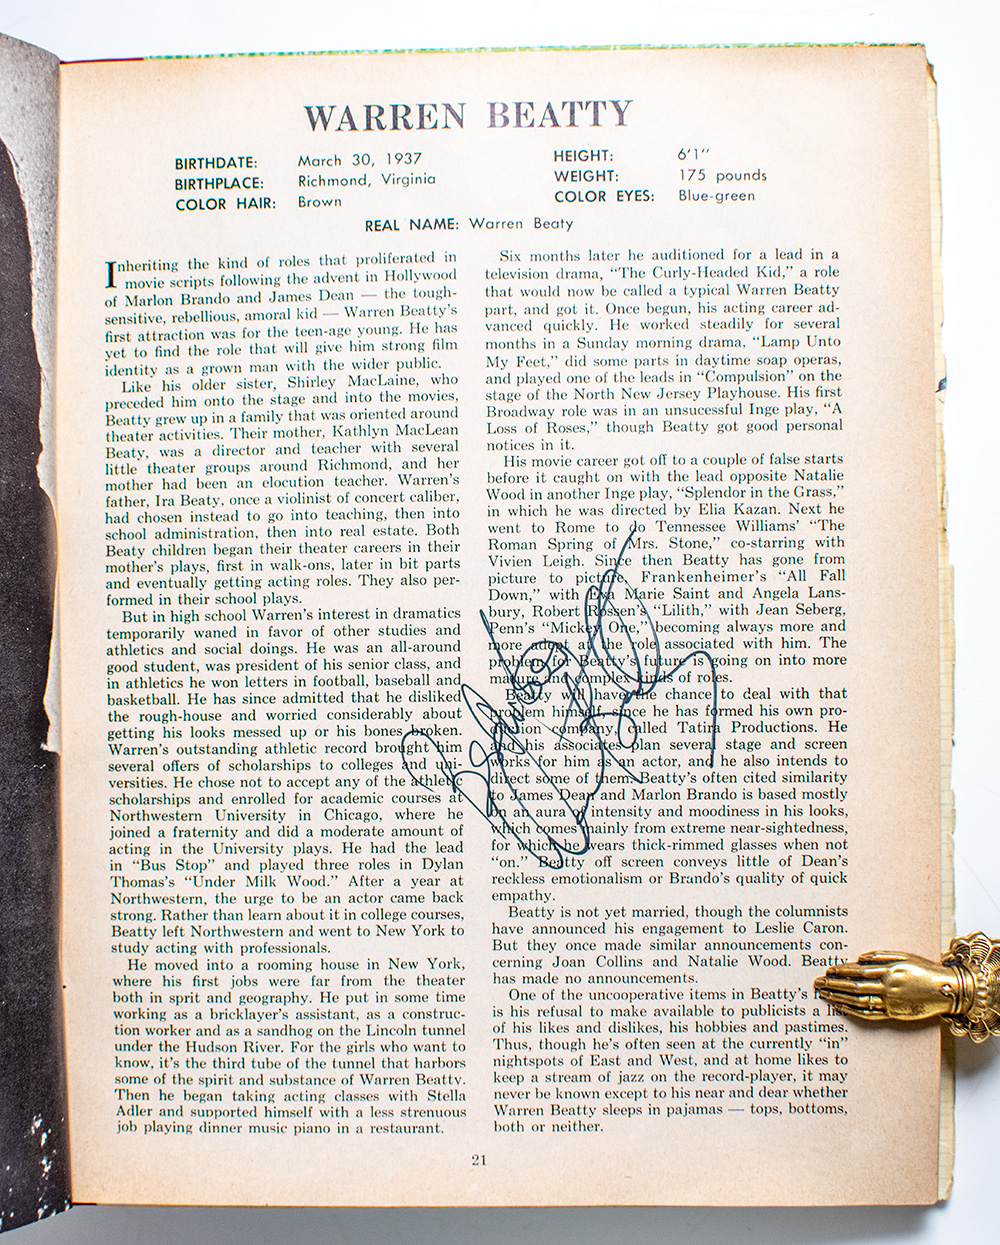 WARREN BEATTY
BIRTHDATE: March 30, 1937
BIRTHPLACE: Richmond, Virginia
COLOR HAIR: Brown
HEIGHT: 6'1"
WEIGHT: 175 pounds
COLOR EYES: Blue-green
REAL NAME: Warren Beaty
Inheriting the kind of roles that proliferated in
movie scripts following the advent in Hollywood
of Marlon Brando and James Dean — the tough-
sensitive, rebellious, amoral kid — Warren Beatty's
first attraction was for the teen-age young. He has
yet to find the role that will give him strong film
identity as a grown man with the wider public.
Like his older sister, Shirley MacLaine, who
preceded him onto the stage and into the movies,
Beatty grew up in a family that was oriented around
theater activities. Their mother, Kathlyn MacLean
Beaty, was a director and teacher with several
little theater groups around Richmond, and her
mother had been an elocution teacher. Warren's
father, Ira Beaty, once a violinist of concert caliber,
had chosen instead to go into teaching, then into
school administration, then into real estate. Both
Beaty children began their theater careers in their
mother's plays, first in walk-ons, later in bit parts
and eventually getting acting roles. They also per-
formed in their school plays.
But in high school Warren's interest in dramatics
temporarily waned in favor of other studies and
athletics and social doings. He was an all-around
good student, was president of his senior class, and
in athletics he won letters in football, baseball and
basketball. He has since admitted that he disliked
the rough-house and worried considerably about
getting his looks messed up or his bones broken.
Warren's outstanding athletic record brought him
several offers of scholarships to colleges and uni-
versities. He chose not to accept any of the athletic
scholarships and enrolled for academic courses at
Northwestern University in Chicago, where he
joined a fraternity and did a moderate amount of
acting in the University plays. He had the lead
in "Bus Stop" and played three roles in Dylan
Thomas's "Under Milk Wood." After a year at
Northwestern, the urge to be an actor came back
strong. Rather than learn about it in college courses,
Beatty left Northwestern and went to New York to
study acting with professionals.
He moved into a rooming house in New York,
where his first jobs were far from the theater
both in sprit and geography. He put in some time
working as a bricklayer's assistant, as a construc-
tion worker and as a sandhog on the Lincoln tunnel
under the Hudson River. For the girls who want to
know, it's the third tube of the tunnel that harbors
some of the spirit and substance of Warren Beatty.
Then he began taking acting classes with Stella
Adler and supported himself with a less strenuous
job playing dinner music piano in a restaurant.
Six months later he auditioned for a lead in a
television drama, "The Curly-Headed Kid," a role
that would now be called a typical Warren Beatty
part, and got it. Once begun, his acting career ad-
vanced quickly. He worked steadily for several
months in a Sunday morning drama, "Lamp Unto
My Feet," did some parts in daytime soap operas,
and played one of the leads in "Compulsion" on the
stage of the North New Jersey Playhouse. His first
Broadway role was in an unsucessful Inge play, "A
Loss of Roses," though Beatty got good personal
notices in it.
His movie career got off to a couple of false starts
before it caught on with the lead opposite Natalie
Wood in another Inge play, "Splendor in the Grass,"
in which he was directed by Elia Kazan. Next he
went to Rome to do Tennessee Williams' "The
Roman Spring of Mrs. Stone," co-starring with
Vivien Leigh. Since then Beatty has gone from
picture to picture, Frankenheimer's "All Fall
Down," with Eva Marie Saint and Angela Lans-
bury, Robert Rossen's "Lilith," with Jean Seberg,
Penn's "Mickey One," becoming always more and
more adept at the role associated with him. The
problem for Beatty's future is going on into more
mature and complex kinds of roles.
Beatty will have the chance to deal with that
problem himself, since he has formed his own pro-
duction company, called Tatira Productions. He
and his associates plan several stage and screen
works for him as an actor, and he also intends to
direct some of them. Beatty's often cited similarity
to James Dean and Marlon Brando is based mostly
on an aura of intensity and moodiness in his looks,
which comes mainly from extreme near-sightedness,
for which he wears thick-rimmed glasses when not
"on." Beatty off screen conveys little of Dean's
reckless emotionalism or Brando's quality of quick
empathy.
Beatty is not yet married, though the columnists
have announced his engagement to Leslie Caron.
But they once made similar announcements con-
cerning Joan Collins and Natalie Wood. Beatty
has made no announcements.
One of the uncooperative items in Beatty's
is his refusal to make available to publicists a list
of his likes and dislikes, his hobbies and pastimes.
Thus, though he's often seen at the currently "in"
nightspots of East and West, and at home likes to
keep a stream of jazz on the record-player, it may
never be known except to his near and dear whether
Warren Beatty sleeps in pajamas — tops, bottoms,
both or neither.
21